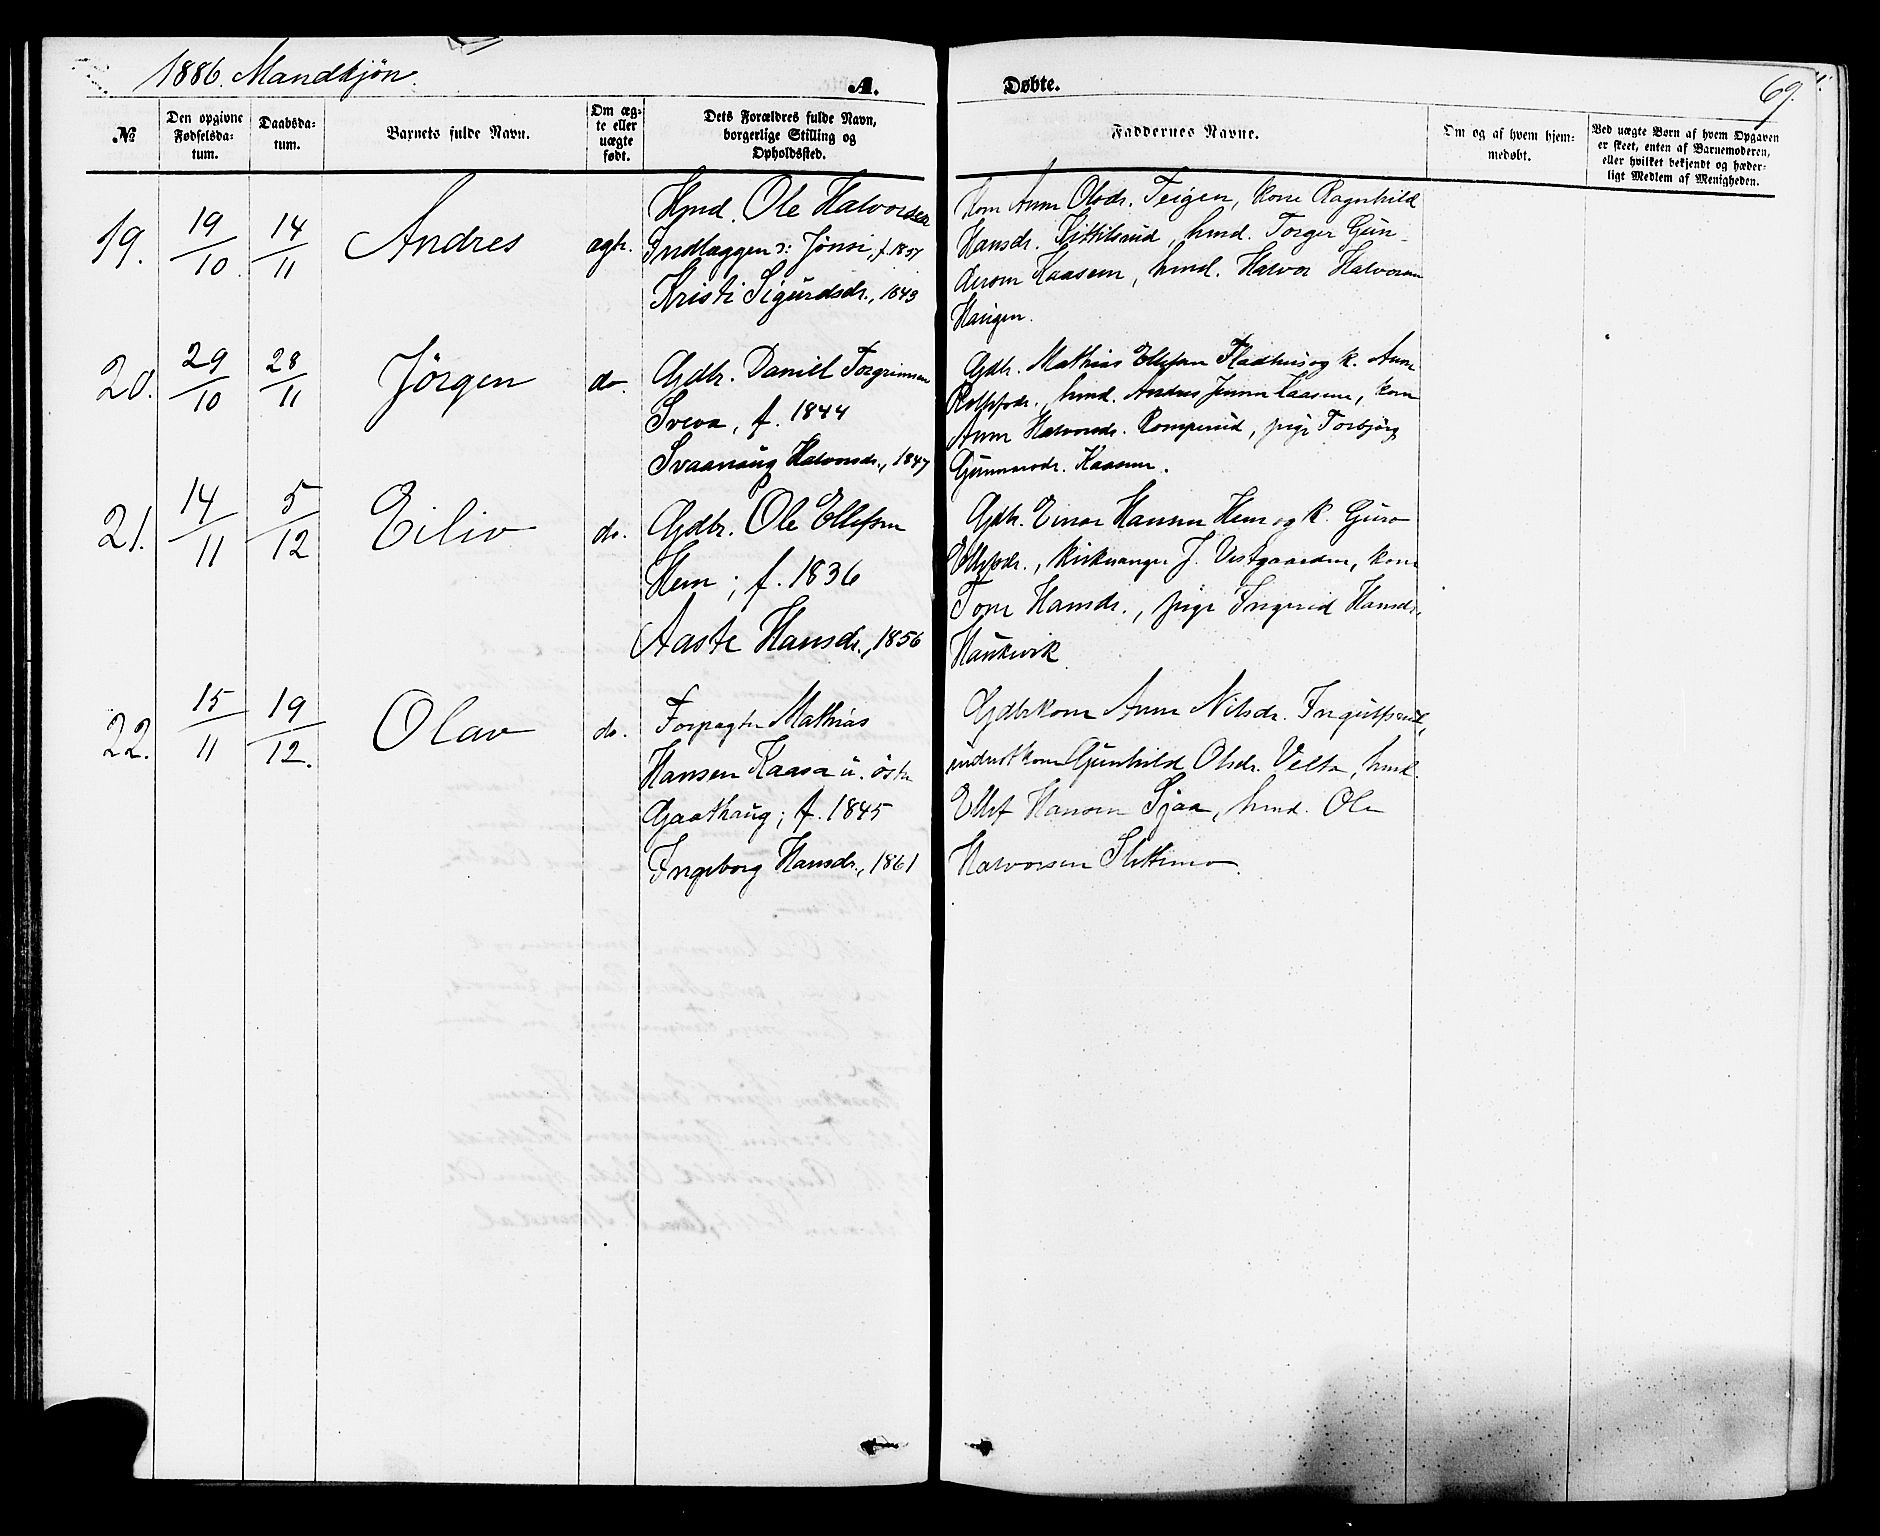 1886. Mandkjøn.
A.
Døbte.
69.
№
Den opgivne
Fødselsda-
tum.
Daabsda-
tum.
Barnets fulde Navn.
Om æg-
te eller
uægte
født.
Dets Forældres fulde Navn,
borgerlige Stilling og
Opholdssted.
Faddernes Navne.
Om og af hvem hjem-
medøbt.
Ved uægte Børn af hvem Opgaven
er skeet, enten af Barnemoderen,
eller hvilket bekjendt og hæder-
ligt Medlem af Menigheden.
19.
19/10
14/11
Andres
ægte.
Hmd. Ole Halvorsen
Indlæggen o: Jønsi, f. 1857
Kristi Sigurdsdr., 1843
Kone Anne Olsdr. Teigen, kone Ragnhild
Hansdr. Kittilsrud, hmd. Torger Gun-
dersen Kaasene, hmd. Halvor Halvorsen
Haugen.
20.
29/10
28/11
Jörgen
do.
Gdbr. Daniel Torgrimsen
Sveva, f. 1844
Svaanaug Halvorsdr., 1847
Gdbr. Mathias Ellefsen Fladhus og k. Anne
hmd. Andres Jensen Kaasene, kone
Anne Halvorsdr. Romperud, pige Torbjörg
Gunnarsdr. Kaasene.
21.
14/11
5/12
Eiliv
do.
Gdbr. Ole Ellefsen
Hem; f. 1836
Aaste Hansdr., 1856
Gdbr. Einar Hansen Hem og k. Guro
Ellefsdr., kirkesanger J. Vestgaarden, kone
Tone Hansdr., pige Ingerid Hansdr.
Haukevik.
22.
15/11
19/12.
Olav
do.
Forpagter Mathias
Hansen Kaasa u. östre
Gaathaug; f. 1845
Ingeborg Hansdr., 1861
Gdbrkone Anne Nilsdr. Ingulfsrud,
inderstkone Gunhild Olsdr. Velta, hmd.
Ellef Hansen Sjaa, hmd. Ole
Halvorsen Slettemo.